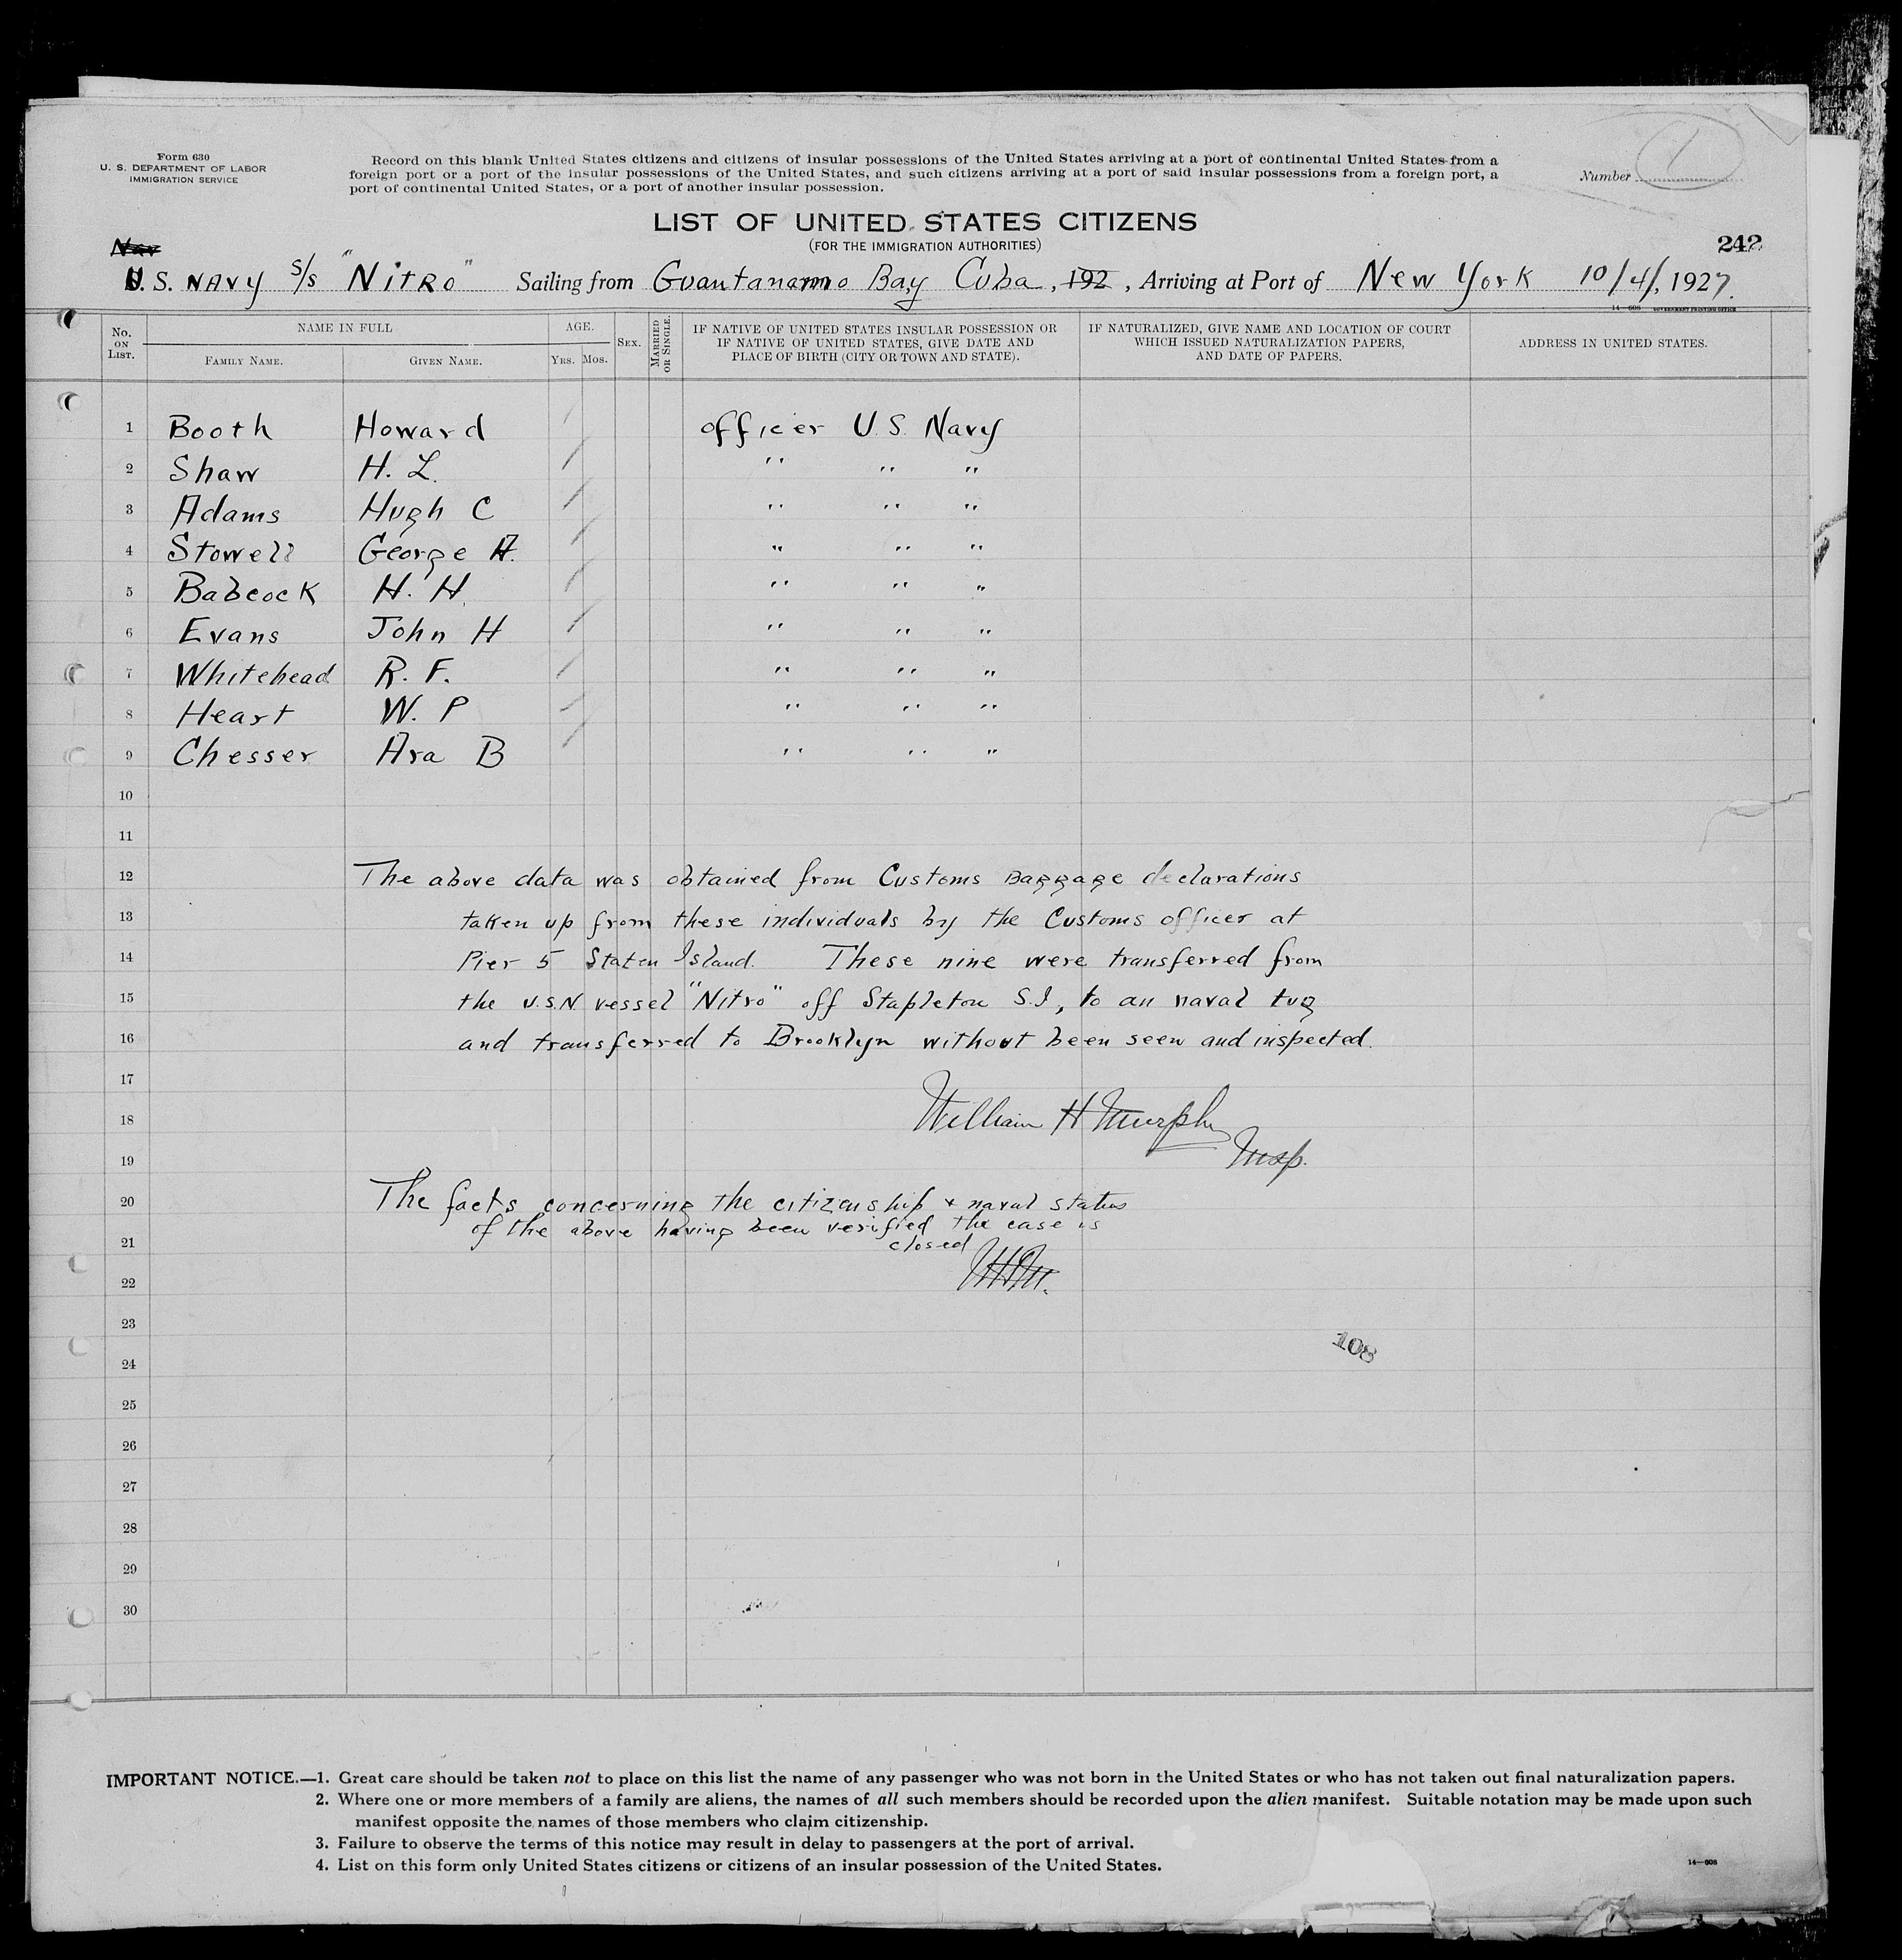 Form 630
U. S. DEPARTMENT OF LABOR
IMMIGRATION SERVICE
Record on this blank United States citizens and citizens of insular possessions of the United States arriving at a port of continental United States from a
foreign port or a port of the insular possessions of the United States, and such citizens arriving at a port of said insular possessions from a foreign port, a
port of continental United States, or a port of another insular possession.
Number 1
LIST OF UNITED STATES CITIZENS
(FOR THE IMMIGRATION AUTHORITIES)
242
Nav
U.S. NAVY S/S "NITRO" Sailing from Guantanamo Bay Cuba, 192 , Arriving at Port of New York 10/4/, 1927.
14—608 GOVERNMENT PRINTING OFFICE
No. ON LIST. NAME IN FULL FAMILY NAME. GIVEN NAME. AGE. YRS. MOS. SEX. MARRIED OR SINGLE. IF NATIVE OF UNITED STATES INSULAR POSSESSION OR IF NATIVE OF UNITED STATES, GIVE DATE AND PLACE OF BIRTH (CITY OR TOWN AND STATE). IF NATURALIZED, GIVE NAME AND LOCATION OF COURT WHICH ISSUED NATURALIZATION PAPERS, AND DATE OF PAPERS. ADDRESS IN UNITED STATES.
1 Booth Howard officer U.S. Navy
2 Shaw H. L. " " "
3 Adams Hugh C " " "
4 Stowell George A. " " "
5 Babcock H. H. " " "
6 Evans John H " " "
7 Whitehead R. F. " " "
8 Heart W. P " " "
9 Chesser Ara B " " "
10
11
12 The above data was obtained from Customs Baggage declarations
13 taken up from these individuals by the Customs officer at
14 Pier 5 Staten Island. These nine were transferred from
15 the U.S.N. vessel "Nitro" off Stapleton S.I, to an naval tug
16 and transferred to Brooklyn without been seen and inspected.
17
18 William H Murphy
19 Insp.
20 The facts concerning the citizenship + naval status
of the above having been verified the case is
21 closed
22 WHM.
23
108
24
25
26
27
28
29
30
IMPORTANT NOTICE.—1. Great care should be taken not to place on this list the name of any passenger who was not born in the United States or who has not taken out final naturalization papers.
2. Where one or more members of a family are aliens, the names of all such members should be recorded upon the alien manifest. Suitable notation may be made upon such
manifest opposite the names of those members who claim citizenship.
3. Failure to observe the terms of this notice may result in delay to passengers at the port of arrival.
4. List on this form only United States citizens or citizens of an insular possession of the United States.
14—608